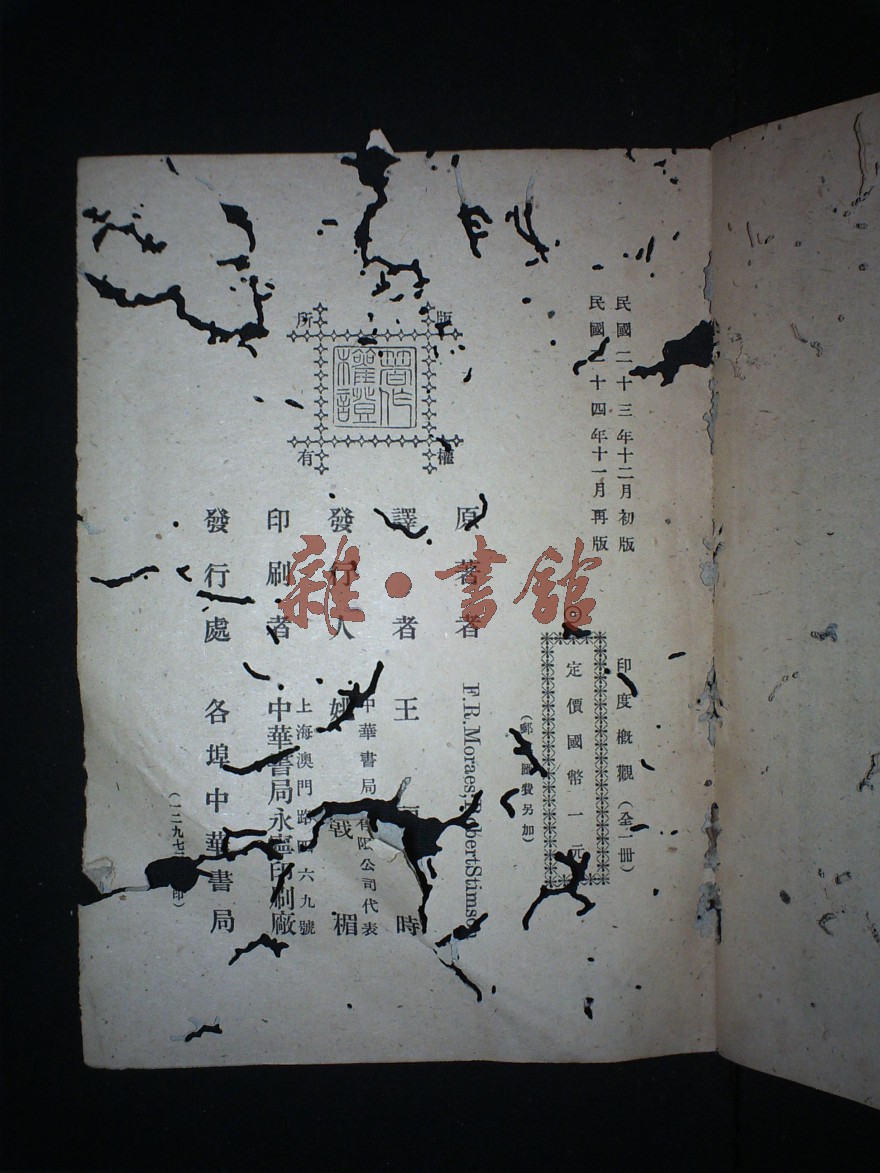 民國二十三年十二月初版
民國十四年十一月再版
印度概觀（全一冊）
定價國幣一元
（郵匯費另加）
版權所有
著作權證
原著者 F.R.Moraes, Robert Stimson
譯者 王時
中華書局有限公司代表
發行人 姚戟楣
上海澳門路四六九號
印刷者 中華書局永寧印刷廠
發行處 各埠中華書局
（一二九七印）
雜·書館